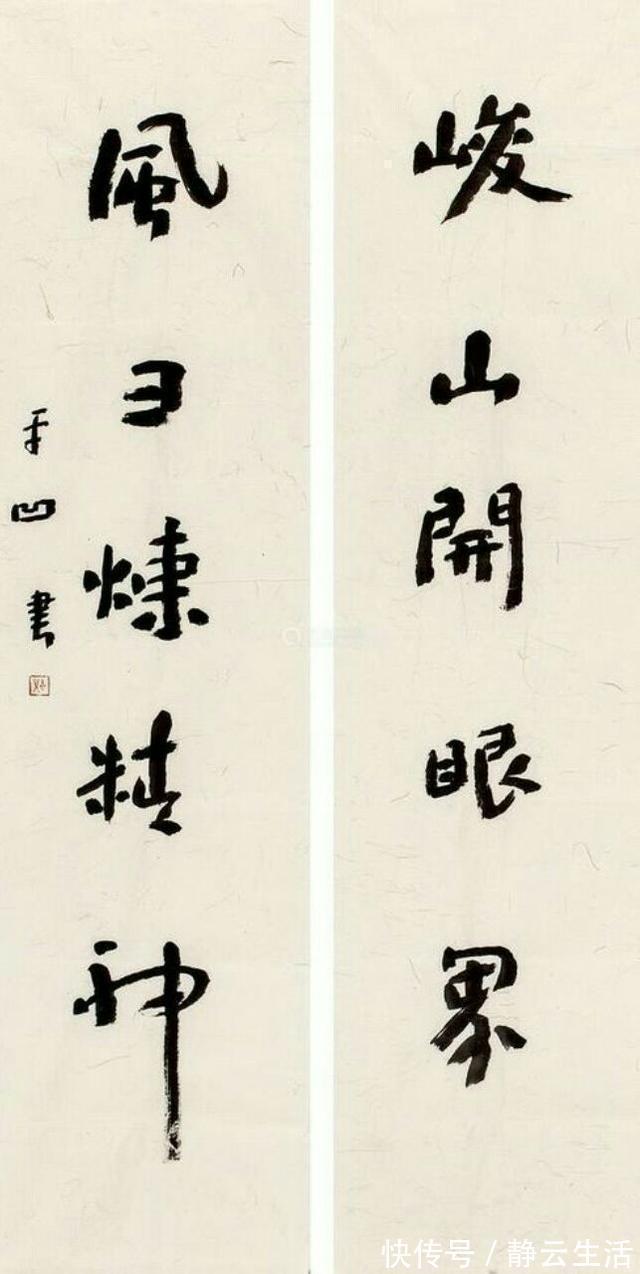 峻山開眼界
風彐煉精神
平凹書
快传号/静云生活